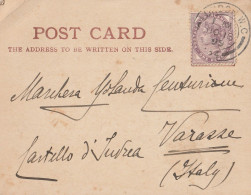 POST CARD
THE ADDRESS TO BE WRITTEN ON THIS SIDE.
LONDON. W.C.
Marchesa Yolanda Centurione
Castello d'Andrea
Varazze
(Italy)